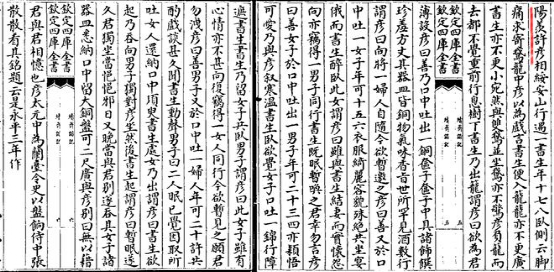 陽羨許彥相綏安山行遇一書生年十七八臥側云脚
痛求寄鵞籠中彥以為戲言書生便入籠籠亦不更廣
書生亦不更小宛然與雙鵞並坐鵞亦不驚彥負籠而
去都不覺重前行息樹下書生乃出籠謂彥曰欲為君
欽定四庫全書
續齊諧記
欽定四庫全書
薄設彥曰善乃口中吐出一銅奩子奩子中具諸餚饌
珍羞方丈其器皿皆銅物氣味香旨世所罕見酒數行
謂彥曰向將一婦人自隨今欲暫邀之彥曰善又於口
中吐一女子年可十五六衣服綺麗容貌殊絕共坐宴
俄而書生醉臥此女謂彥曰雖與書生結妻而實懷怨
向亦竊得一男子同行書生既眠暫喚之君幸勿言彥
曰善女子於口中吐出一男子年可二十三四亦穎悟
可愛乃與彥叙寒溫書生臥欲覺女子口吐一錦行障
遮書生書生乃留女子共臥男子謂彥曰此女子雖有
心情亦不甚向復竊得一女人同行今欲暫見之願君
勿洩彥曰善男子又於口中吐一婦人年可二十許共
酌戲談甚久聞書生動聲男子曰二人眠已覺因取所
吐女人還納口中須臾書生處女乃出謂彥曰書生欲
起乃吞向男子獨對彥坐然後書生起謂彥曰暫眠遂
欽定四庫全書
續齊諧記
欽定四庫全書
久君獨坐當悒悒邪日又晚當與君別遂吞其女子諸
器皿悉納口中留大銅盤可二尺廣與彥別曰無以藉
君與君相憶也彥太元中為蘭臺令史以盤餉侍中張
散散看其銘題云是永平三年作